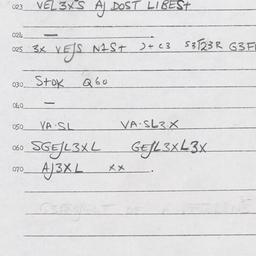 023 VEL3X'S AJ DOST LIBEST
024 —
025 3X VEJS N1ST J+C3 S3T23R G3F
030 STOK Q60
040 —
050 VA·SL VA·SL3X
060 SGEJL3XL GEJL3XL3X
070 AJ3XL XX .